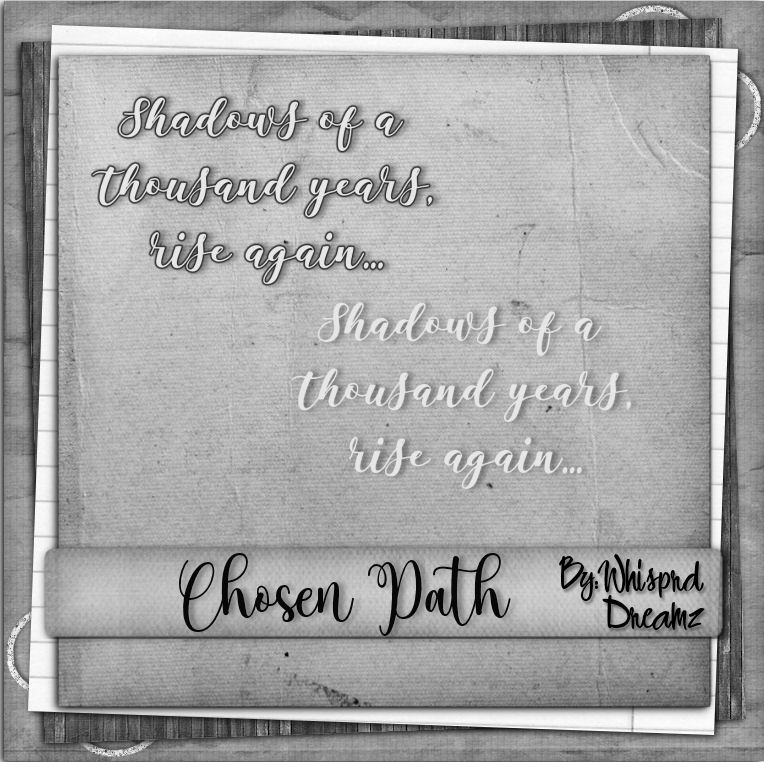 Shadows of a
thousand years,
rise again...
Shadows of a
thousand years,
rise again...
Chosen Path
By:Whisprd
Dreamz